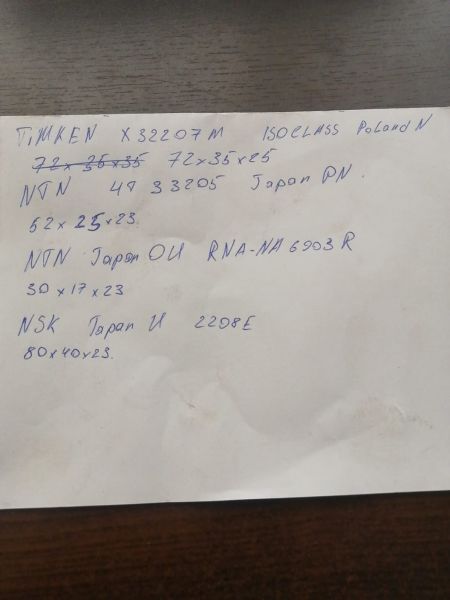 TIMKEN X32207M ISOCLASS Poland N
72x35x35 72x35x25
NTN 4T 33205 Japan PN.
52x25x23.
NTN Japan OU RNA-NA6903R
30x17x23
NSK Japan U 2208E
80x40x23.